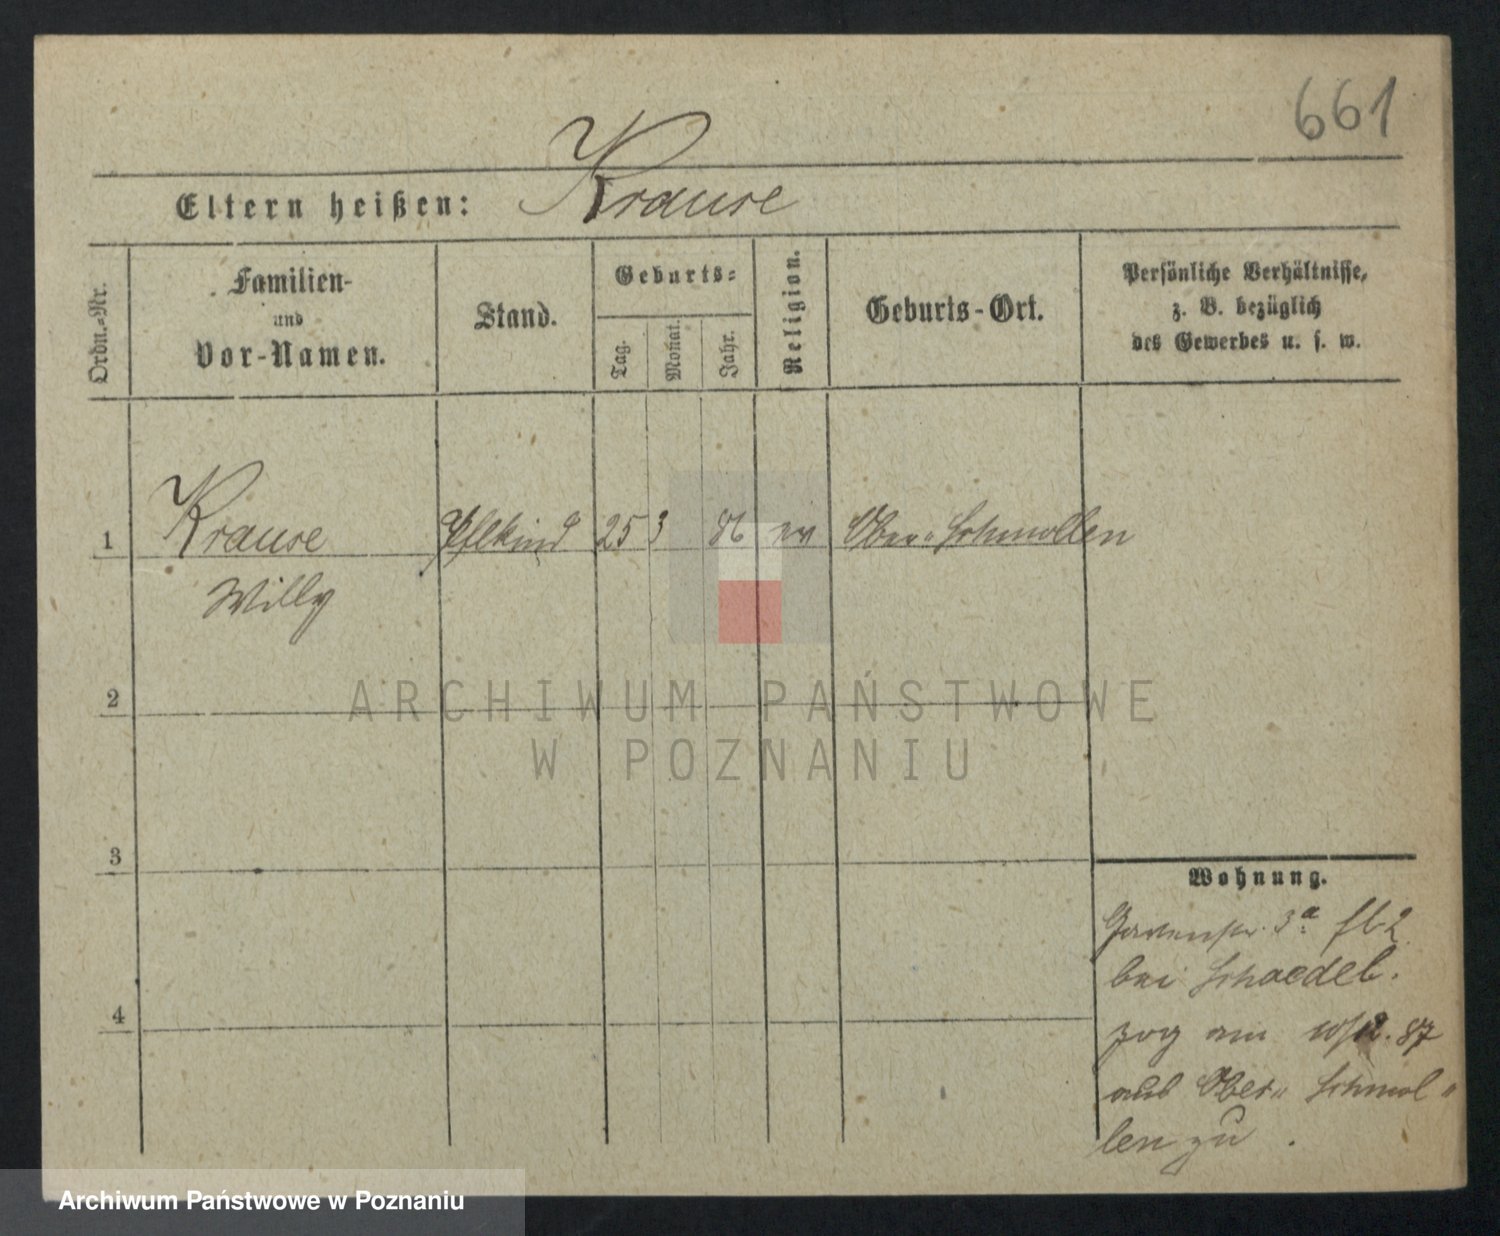 661
Eltern heißen: Krause
Ordn.-Nr.
Familien-
und
Vor-Namen.
Stand.
Geburts-
Tag.
Monat.
Jahr.
Religion.
Geburts-Ort.
Persönliche Verhältnisse,
z. B. bezüglich
des Gewerbes u. s. w.
1 Krause Pflkind 25 3 86 ev Ober-Schmollen
Willy
2
3
4
Wohnung.
3a
bei Schaedel.
zog am 10/12. 87
aus Ober- Schmol-
len zu.
ARCHIWUM PAŃSTWOWE
W POZNANIU
Archiwum Państwowe w Poznaniu